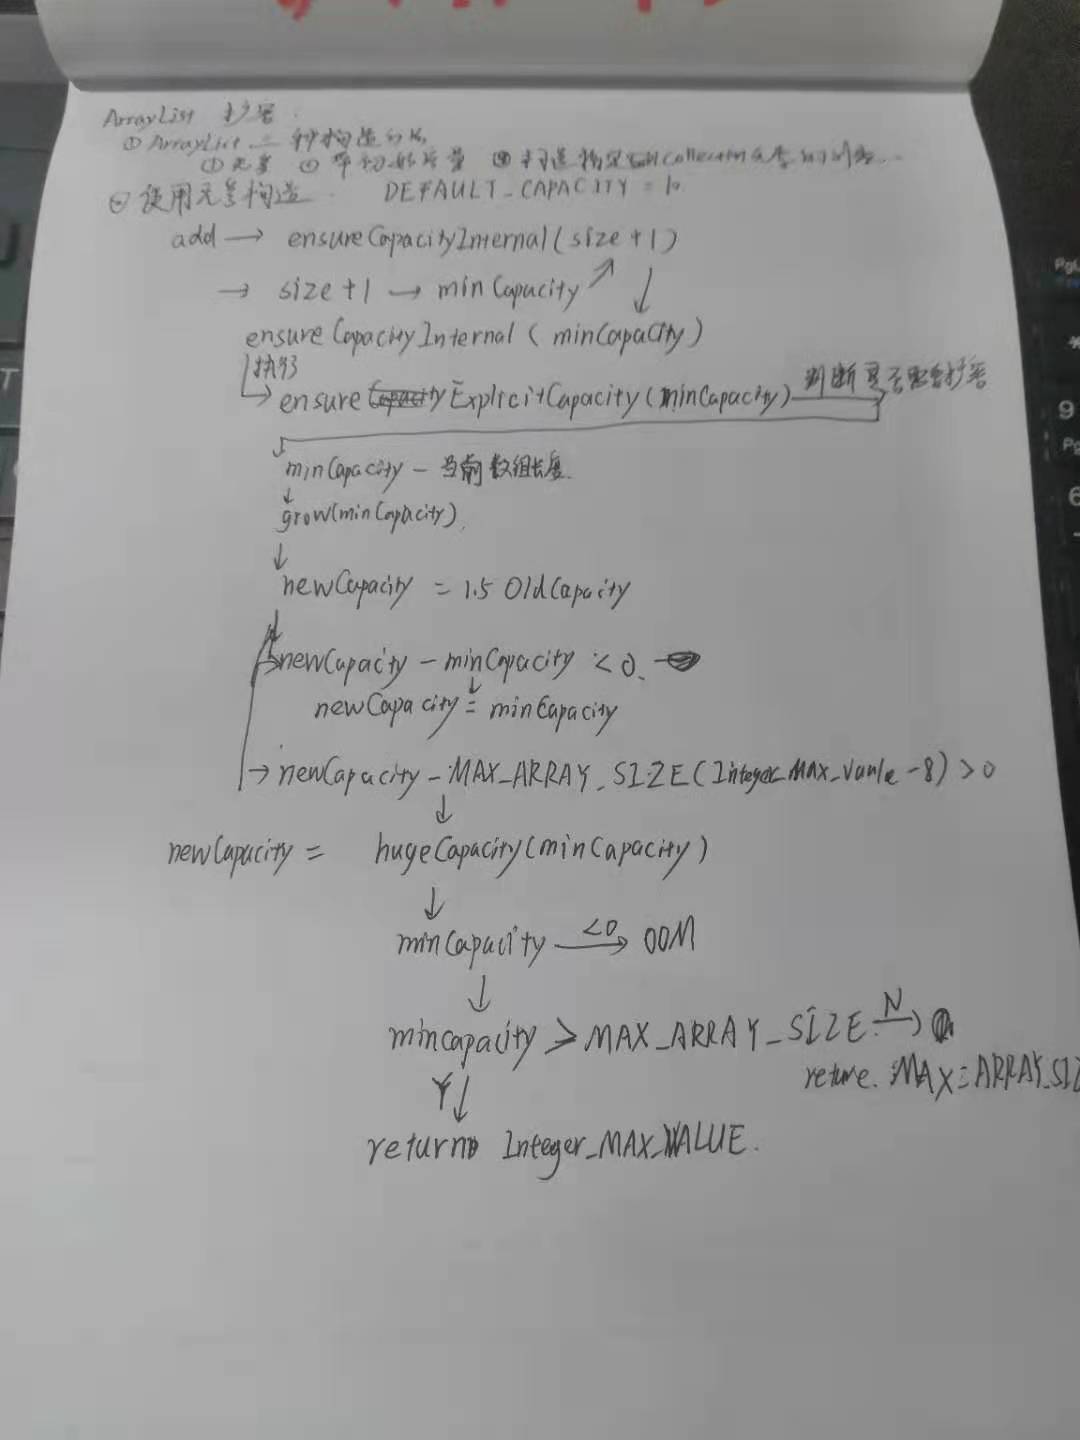 ArrayList 扩容.
① ArrayList 三种构造方法
① 无参 ② 带初始容量 ③ 构造指定 Collection
② 使用无参构造. DEFAULT_CAPACITY = 10
add → ensureCapacityInternal(size+1)
→ size+1 → minCapacity ↗ ↓
ensureCapacityInternal(minCapacity)
执行
→ ensure ExplicitCapacity(minCapacity) 判断是否需要扩容
minCapacity - 当前数组长度.
↓
grow(minCapacity)
↓
newCapacity = 1.5 OldCapacity
↓
→ newCapacity - minCapacity < 0.
↓
newCapacity = minCapacity
→ newCapacity - MAX_ARRAY_SIZE(Integer_MAX_Vaule -8) > 0
↓
newCapacity = hugeCapacity(minCapacity)
↓
minCapacity <0 → OOM
↓
mincapacity > MAX_ARRAY_SIZE. N →
retune. MAX=ARRAY_SIZ
Y ↓
return Integer_MAX_VALUE.
PgU
9
Pg
6